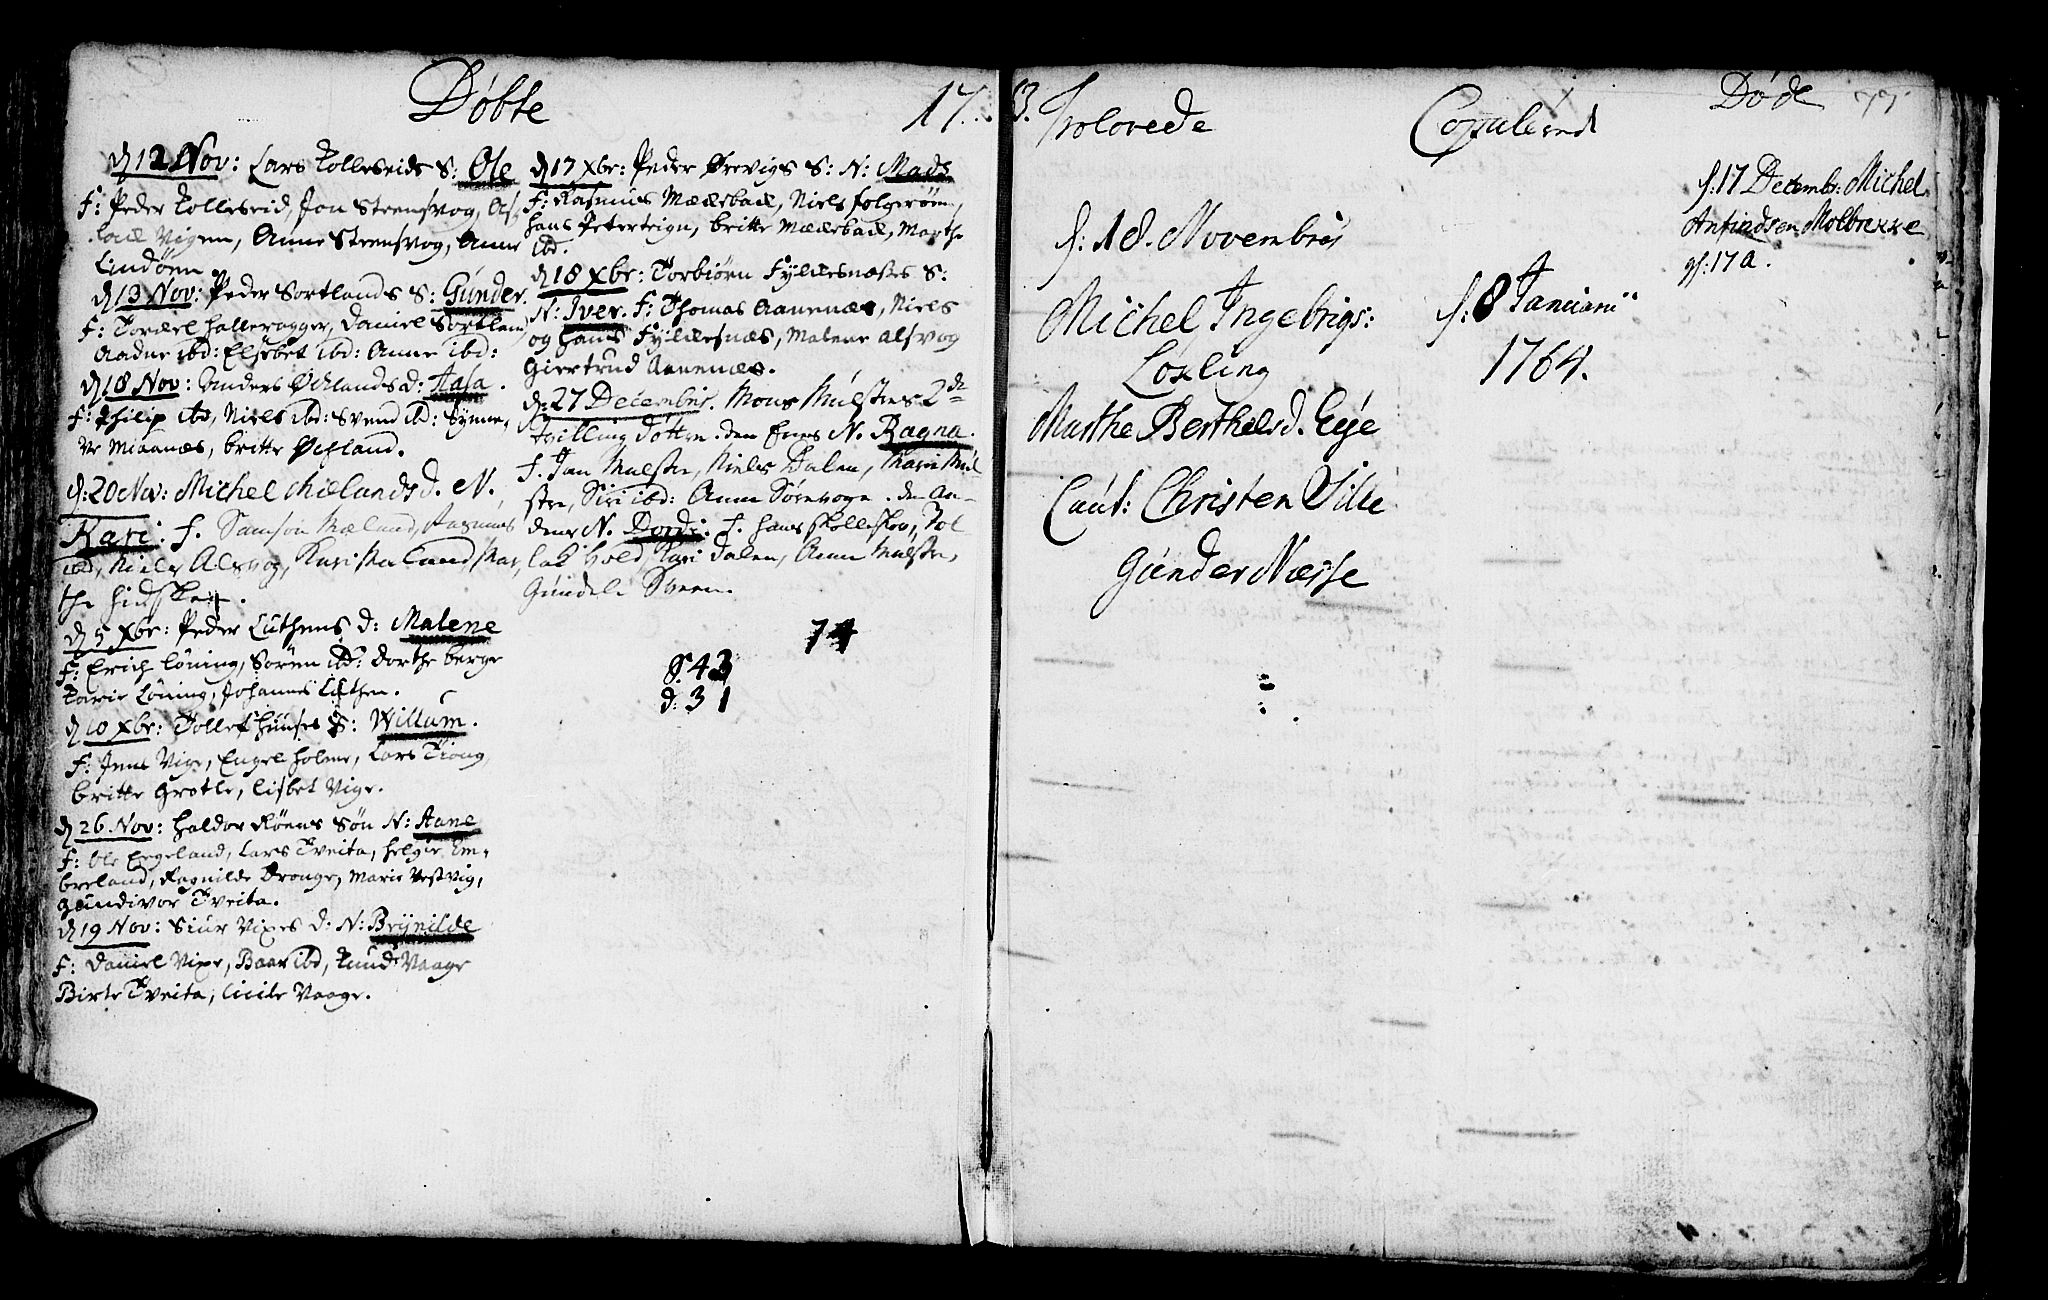 Døbte
17
d 12 Nov: Lars Kolleseids S: Ole
F: Peder Kolleseid, Jon Steensvog, As,
Vigen, Anne Steensvog, Anne
Lindøen
d 13 Nov: Peder Sortlands S: Gunder.
F: Tordel Halleragger, Daniel Sortlan
Aadne ibd: Elsebet ibd: Anne ibd:
d 18 Nov: Anders Øchlands d: Aasa.
F: Philip ibd, Niels ibd: Svend ibd: Synne,
Ve Miaanæs, britte Øchland.
d: 20 Nov: Michel Mælands d. N.
Kari: F. Samson Mæland, Rasmus
ibd, Niels Alsvog, Kari Mæland, Mar,
the Hidsker.
d 5 Xbr: Peder Luthens d: Malene
F: Erich Løning, Søren ibd: Dorthe berge
Karie Løning, Johannes Luthen.
d 10 Xbr: Tollef Huuses S: Willum.
F: Jens Vige, Engel Holme, Lars Tiong
britte Grotle, Lisbet Vige.
d 26. Nov: Haldor Røens Søn N: Aane
F: Ole Eegeland, Lars Tveita, Helgie Em,
breland, Ragnilde Dronge, Marie Vestvig,
Gundivor Tveita.
d 19 Nov: Siur Vixes d: N: Brynilde
F: Daniel Vixe, Baar ibd, Knud Vaage
Birte Tveita, Cicile Vaage.
d 17 Xbr: Peder Ørevigs S: N: Mads
F: Rasmus Mæelebach, Niels Folgerøen,
Hans Peterteign, britte Mæelebach, Marthe
ibd.
d 18 Xbr: Torbiørn Fyldesnæses S:
N: Iver. F: Thomas Aanenæs, Niels
og Hans Fyldesnæs, Malene Alsvog
Giertrud Aanenæs.
d: 27 Decembris. Mons Mulstres 2de
Tvilling døttre. den Enes N. Ragna.
F. Jan Mulstre, Niels Dalen, Marie Mul
stre, Siri ibd: Anne Sørvoge. de An-
dens N. Dordi: F. Hans Skolleskou, Tol
lak Hold, Kari Dalen, Anne Mulstre,
Gundele Sveen.
74
S. 43
d: 31
3.
Trolovede
d: 18. Novembris
Michel Ingebrigs:
Loxling
Marthe Berthelsd. Eye
Caut: Christen Sille
Gunder Næsse
Copuleered
d: 8 Januarii
1764.
Døde
77
d: 17 Decembr: Michel
Anfindsen Molbrekke
gl: 17 a.